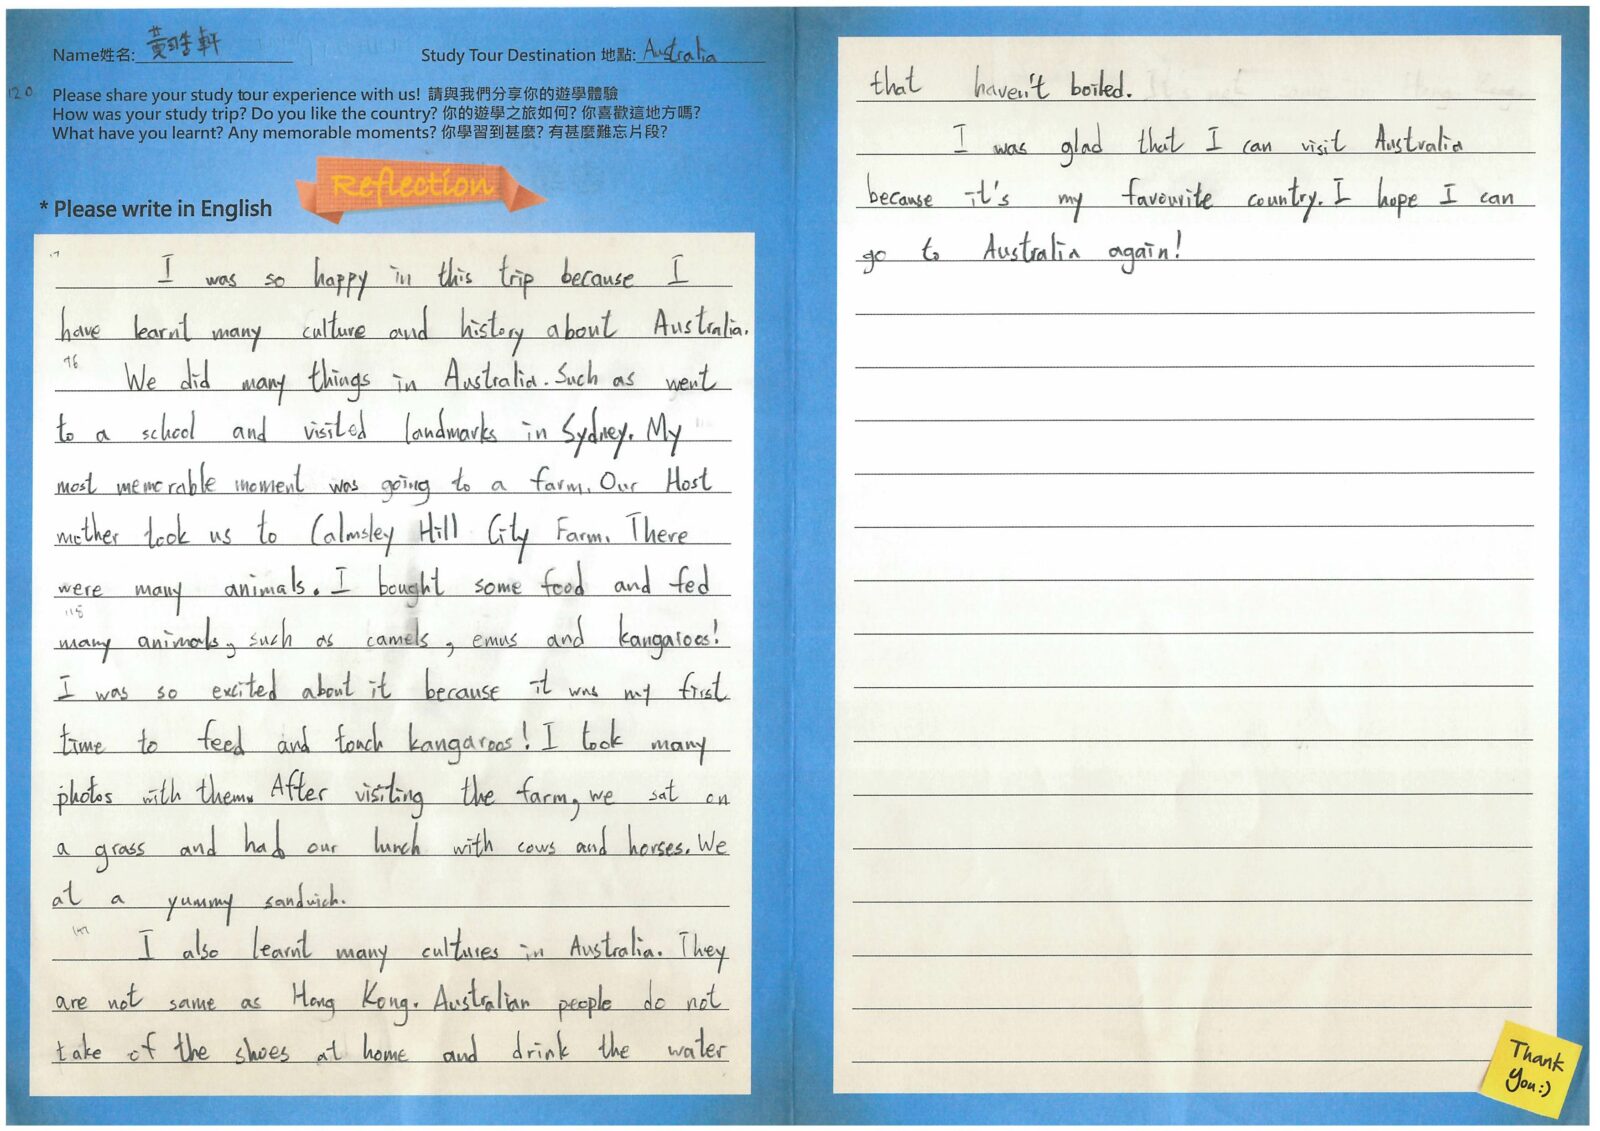 Name姓名: 黃晧軒 Study Tour Destination 地點: Australia
120
Please share your study tour experience with us! 請與我們分享你的遊學體驗
How was your study trip? Do you like the country? 你的遊學之旅如何? 你喜歡這地方嗎?
What have you learnt? Any memorable moments? 你學習到甚麼? 有甚麼難忘片段?
Reflection
* Please write in English
I was so happy in this trip because I
have learnt many culture and history about Australia.
76
We did many things in Australia. Such as went
to a school and visited landmarks in Sydney. My
most memorable moment was going to a farm. Our Host
mother took us to Calmsley Hill City Farm. There
were many animals. I bought some food and fed
118
many animals, such as camels, emus and kangaroos!
I was so excited about it because it was my first
time to feed and touch kangaroos! I took many
photos with them. After visiting the farm, we sat on
a grass and had our lunch with cows and horses. We
at a yummy sandwich.
I also learnt many cultures in Australia. They
are not same as Hong Kong. Australian people do not
take of the shoes at home and drink the water
that haven't boiled.
I was glad that I can visit Australia
because it's my favourite country. I hope I can
go to Australia again!
Thank
You:)